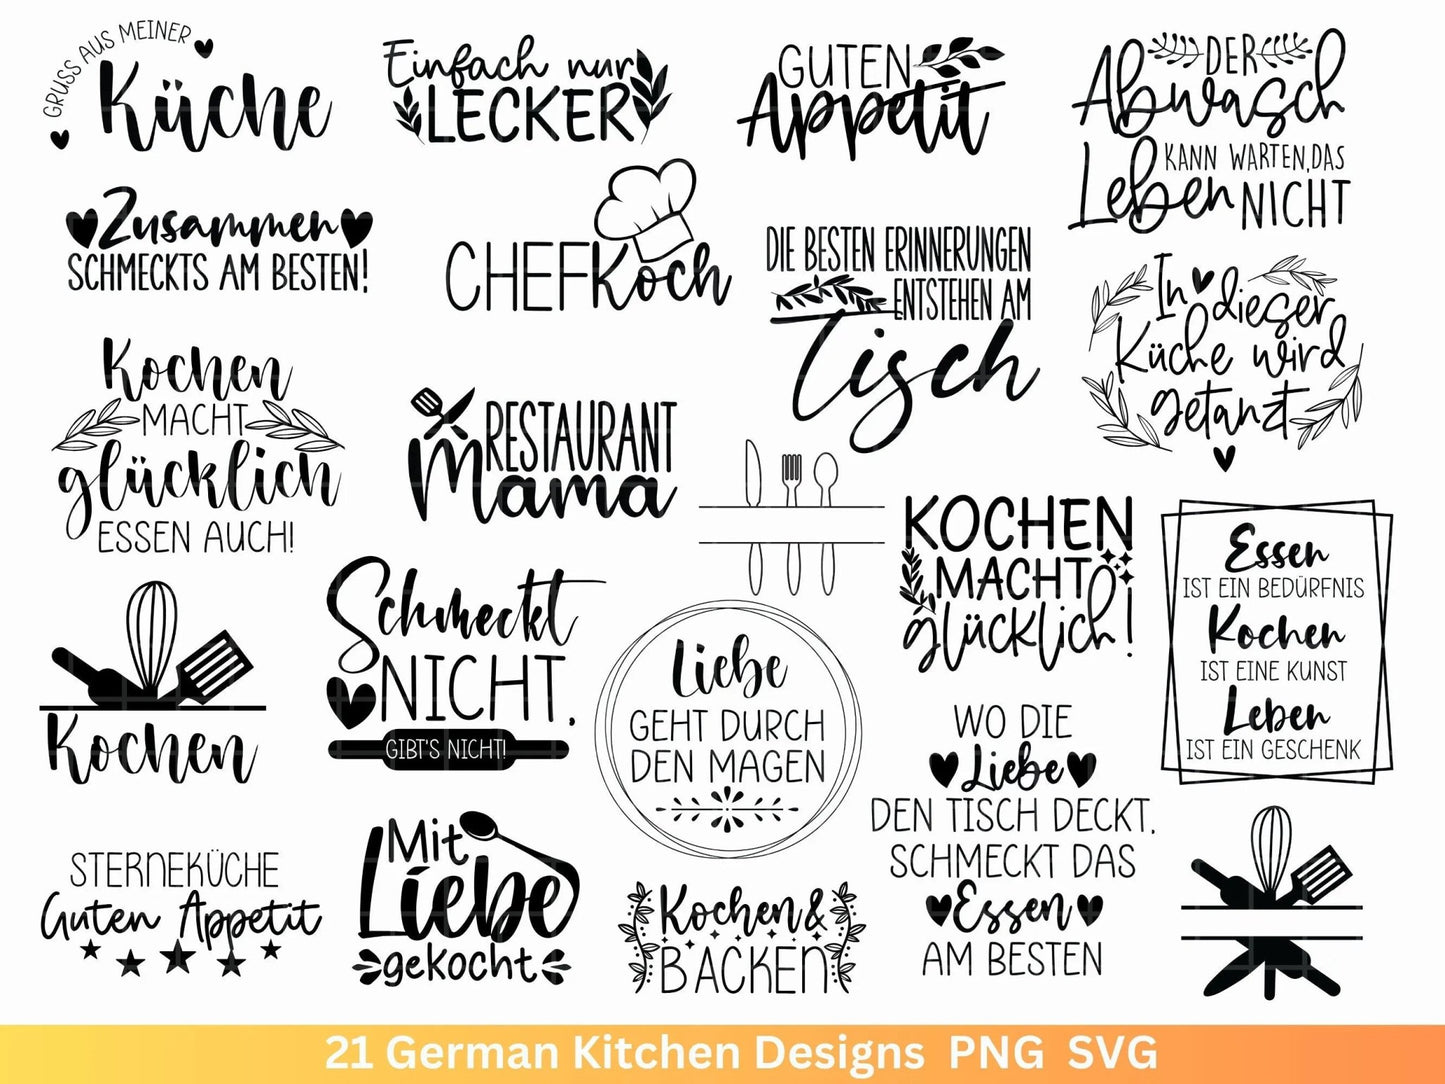 GRUSS AUS MEINER
Küche
Einfach nur
LECKER
GUTEN
Appetit
DER
Abwasch
KANN WARTEN, DAS
Leben NICHT
Zusammen
SCHMECKTS AM BESTEN!
CHEFKoch
DIE BESTEN ERINNERUNGEN
ENTSTEHEN AM
Tisch
In dieser
Küche wird
getanzt
Kochen
MACHT
glücklich
ESSEN AUCH!
RESTAURANT
Mama
KOCHEN
MACHT
glücklich!
Essen
IST EIN BEDÜRFNIS
Kochen
IST EINE KUNST
Leben
IST EIN GESCHENK
Kochen
Schmeckt
NICHT.
GIBT'S NICHT!
Liebe
GEHT DURCH
DEN MAGEN
WO DIE
Liebe
DEN TISCH DECKT,
SCHMECKT DAS
Essen
AM BESTEN
STERNEKÜCHE
Guten Appetit
Mit
Liebe
gekocht
Kochen &
BACKEN
21 German Kitchen Designs PNG SVG